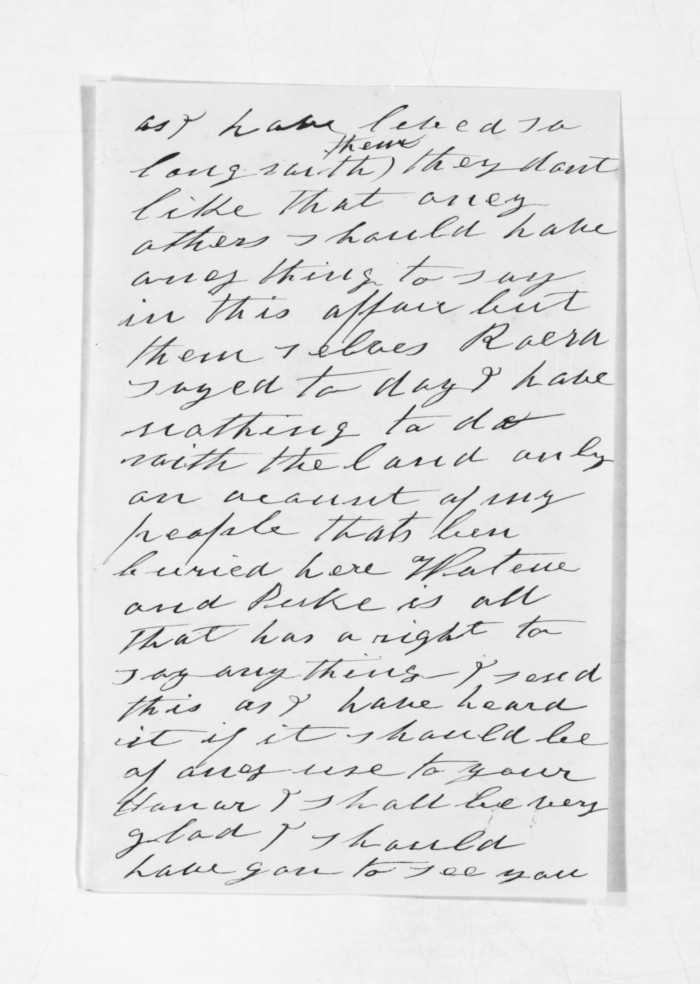 as I have leved so
long with them) they dont
like that aney
others should have
aney thing to say
in this affair but
them selves Raera
sayed to day I have
nothing to do
with the land only
on acount of my
people thats ben
buried here Watene
and Puke is all
that has a right to
say any thing I send
this as I have heard
it if it should be
of aney use to your
Honar I shall be very
glad I should
have gon to see you